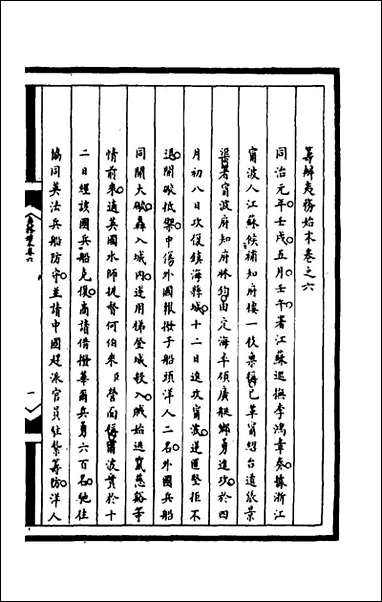 籌辦夷務始末卷之六
同治元年壬戌五月壬午署江蘇巡撫李鴻章奏據浙江
甯波人江蘇候補知府樓一枝稟稱已革甯紹台道張景
渠署甯波府知府林鈞由定海率領廣艇鄉勇進攻於四
月初八日攻復鎮海縣城十二日進攻甯波逆匪堅拒不
退開礮抵禦中傷外國報授于船頭洋人二名外國兵船
同開大礮轟入城內連用梯登城殺入賊始逃竄慈谿等
情前來適英國水師提督何伯來營面稱甯波賁於十
二日經該國兵船克復商請借撥華爾兵勇六百名馳往
協同英法兵船防守並請中國趕派官員往紮籌防洋人
一